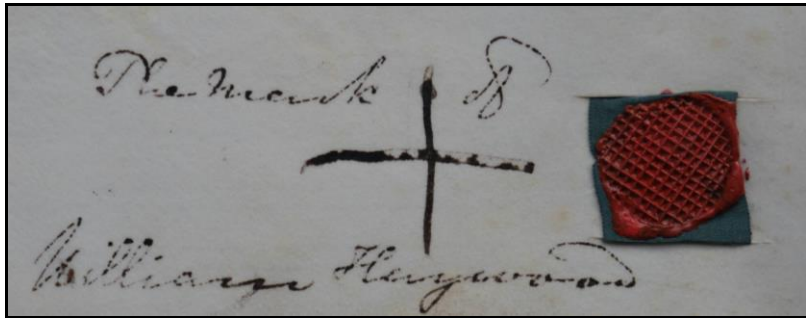 The Mark of
William Heywood